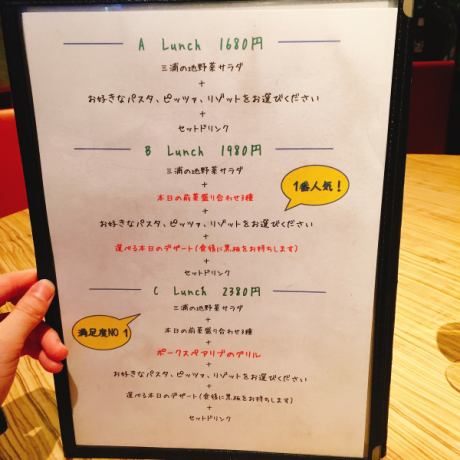 A Lunch 1680円
三浦の地野菜サラダ
+
お好きなパスタ、ピッツァ、リゾットをお選びください
+
セットドリンク
B Lunch 1980円
三浦の地野菜サラダ
+
本日の前菜盛り合わせ3種
1番人気！
+
お好きなパスタ、ピッツァ、リゾットをお選びください
+
選べる本日のデザート(食後に黒板をお持ちします)
+
セットドリンク
C Lunch 2380円
三浦の地野菜サラダ
+
本日の前菜盛り合わせ3種
満足度NO 1
+
ポークスペアリブのグリル
+
お好きなパスタ、ピッツァ、リゾットをお選びください
+
選べる本日のデザート(食後に黒板をお持ちします)
+
セットドリンク